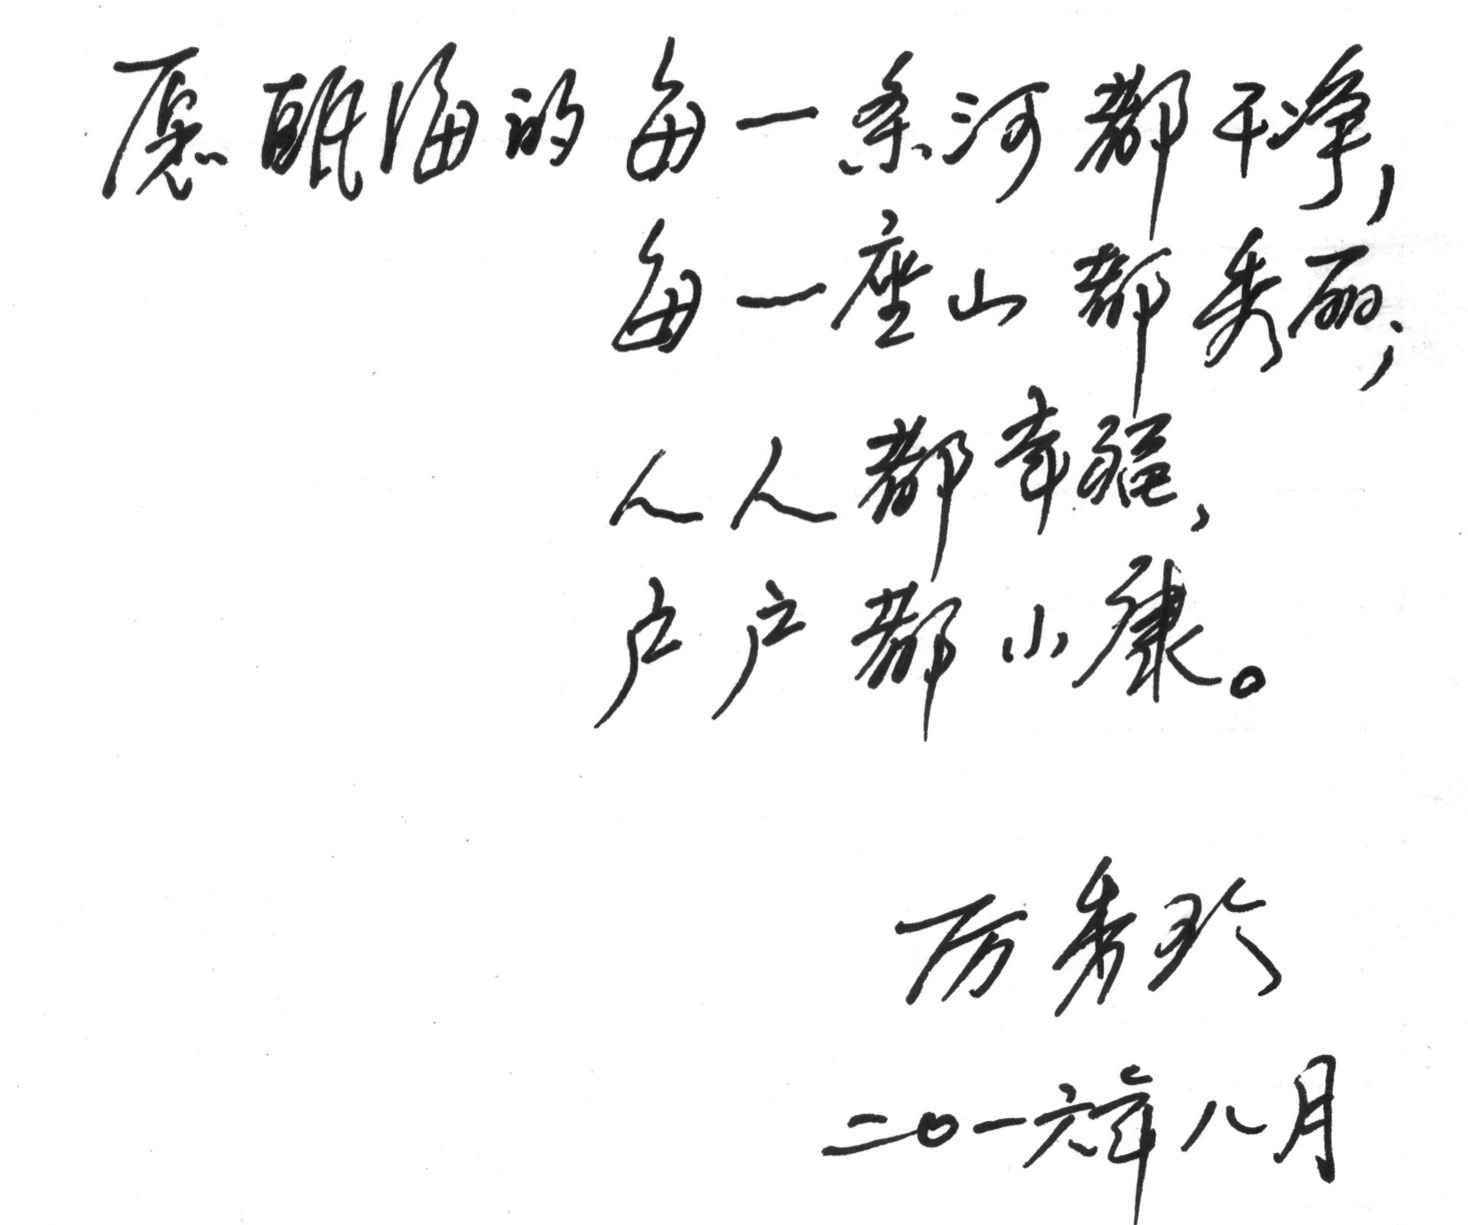 愿瓯海的每一条河都干净,
每一座山都秀丽;
人人都幸福,
户户都小康。
厉秀珍
二〇一六年八月